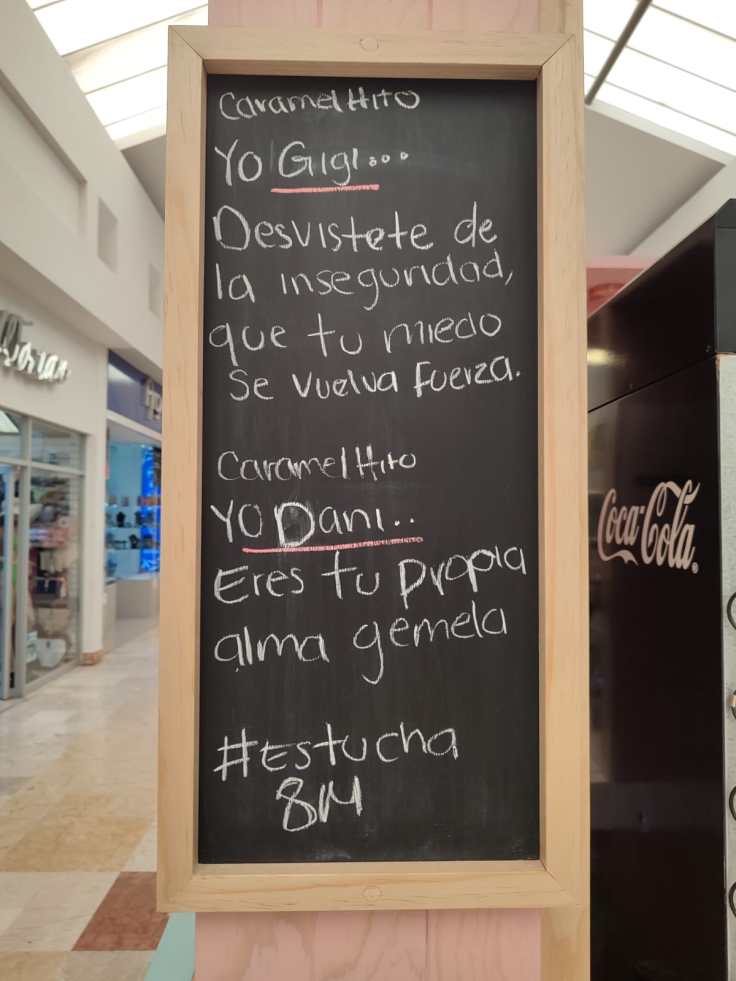 CaramelHito
Yo Gigi...
Desvistete de
la inseguridad,
que tu miedo
se vuelva fuerza.
CaramelHito
YO Dani..
Eres tu propia
alma gemela
#Estucha
8M
Coca-Cola